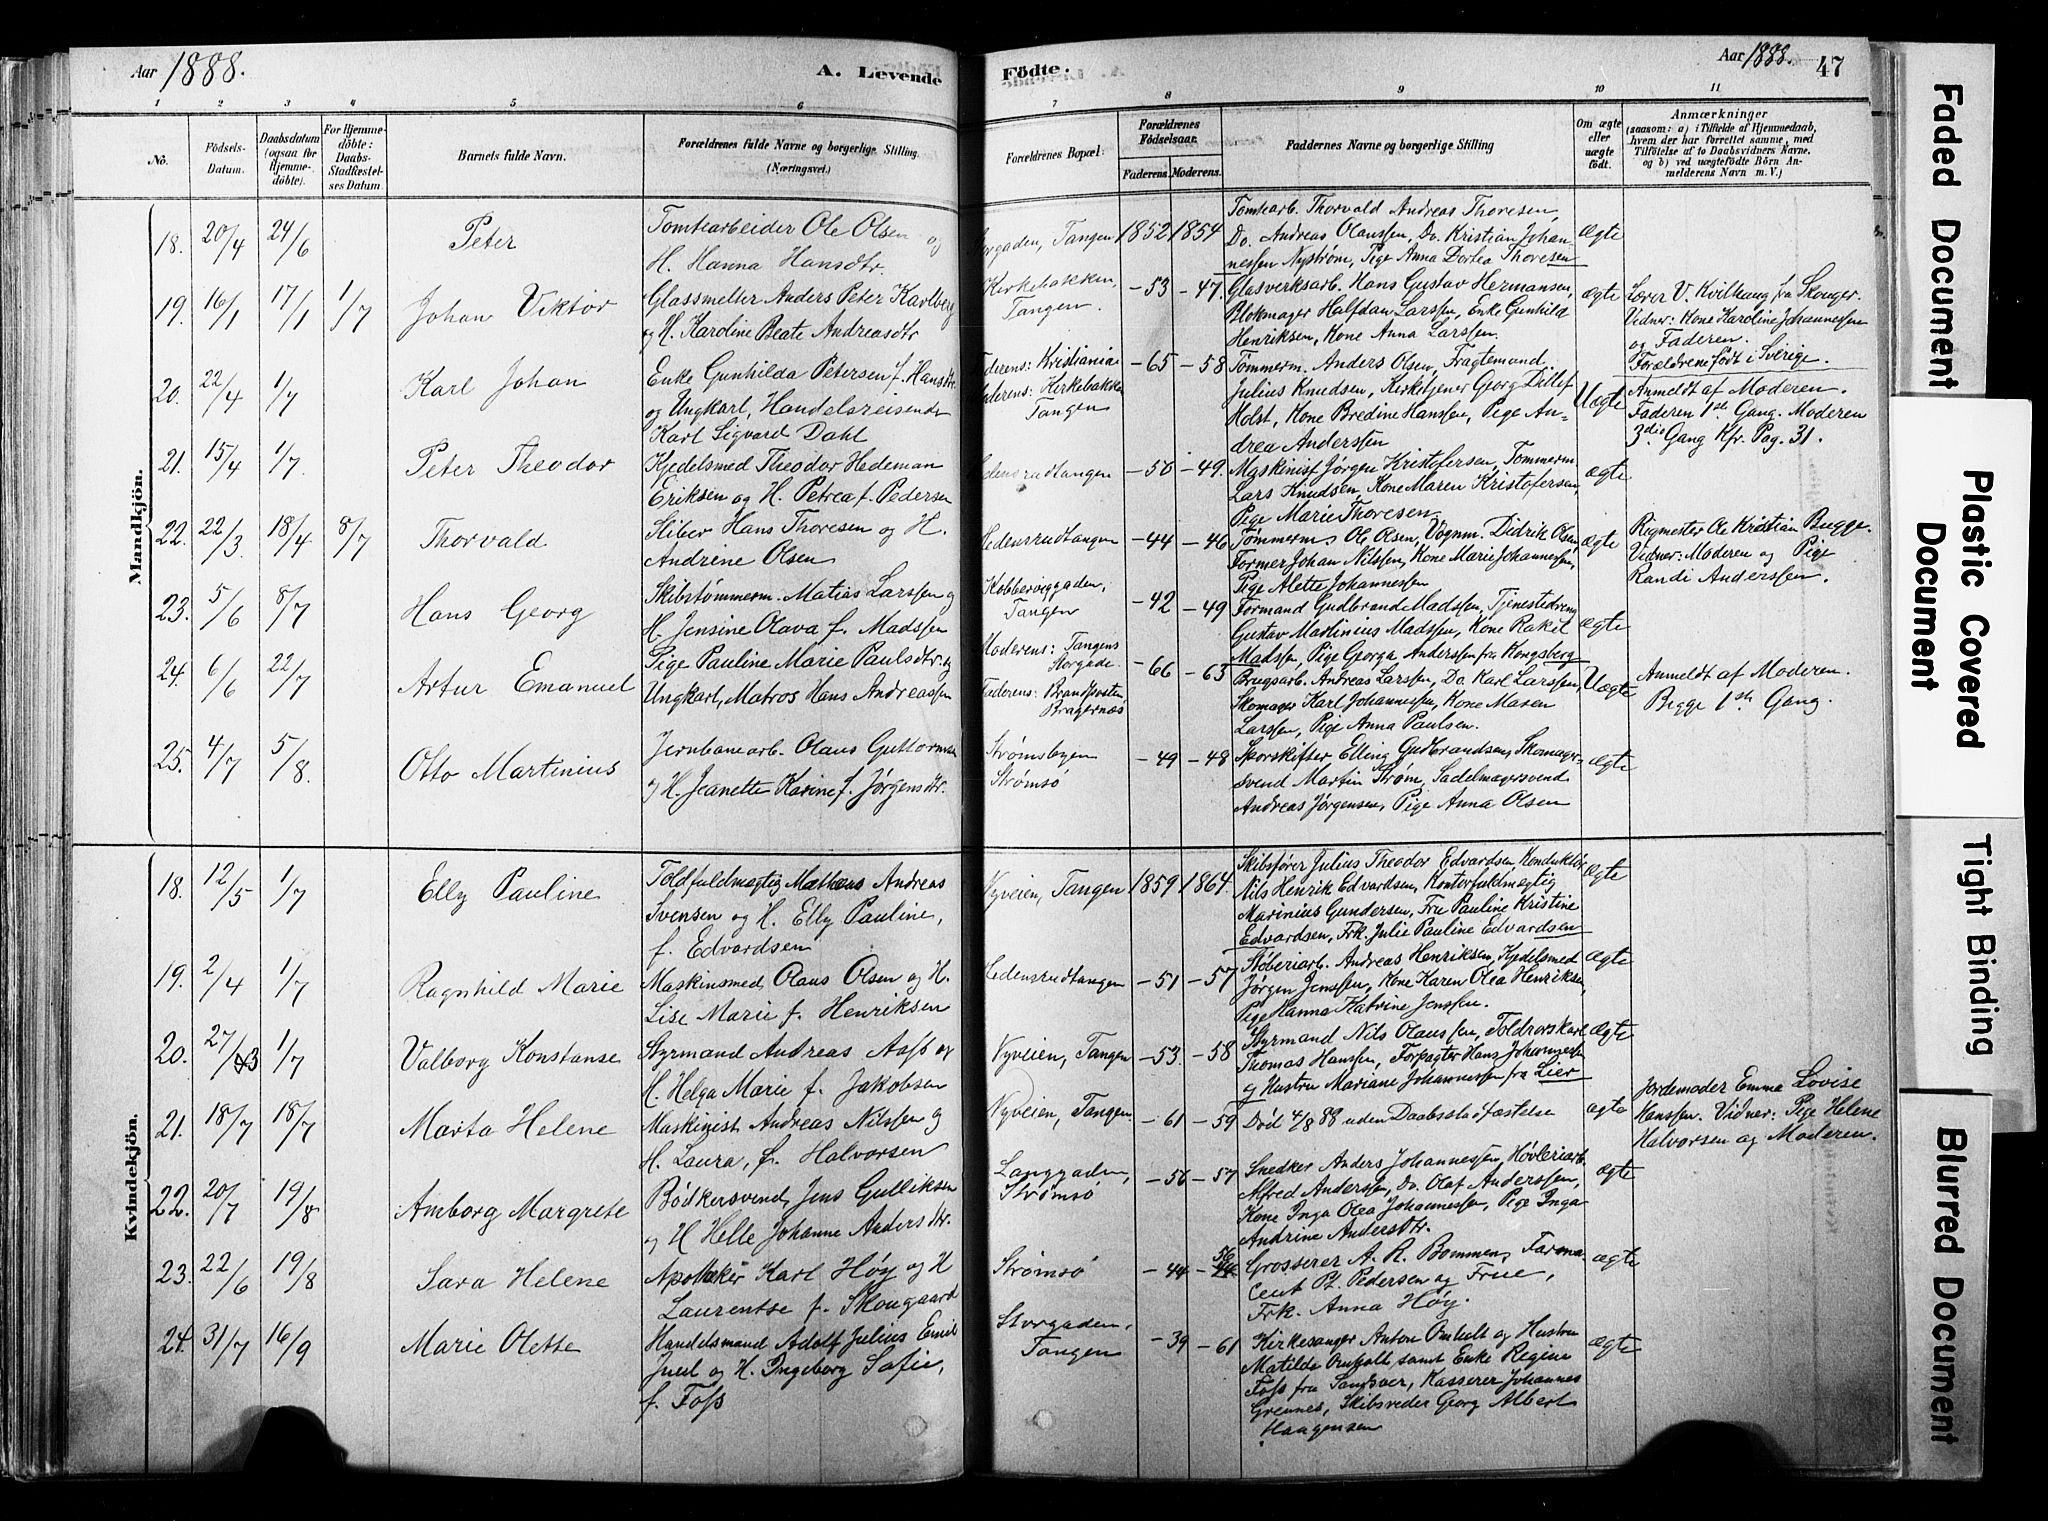 Aar 1888.
A. Levende
1 2 3 4 5 6
No.
Födsels-
Datum.
Daabsdatum
(ogsaa for
Hjemme-
döbte).
For Hjemme-
döbte:
Daabs-
Stadfæstel-
ses Datum.
Barnets fulde Navn.
Forældrenes fulde Navne og borgerlige Stilling.
(Næringsvei.)
Mandkjön.
18. 20/4 24/6 Peter
Tomtearbeider Ole Olsen og
H. Hanna Hansdtr.
19. 16/1 17/1 1/7 Johan Viktor
Glassmelter Anders Peter Karlberg
og H. Karoline Beate Andreasdtr
20. 22/4 1/7 Karl Johan
Enke Gunhilda Petersen f. Hansdtr.
og Ungkarl, Handelsreisende
Karl Sigvard Dahl
21. 15/4 1/7 Peter Theodor
Kjedelsmed Theodor Hedeman
Eriksen og H. Petrea f. Pedersen
22. 22/3 18/4 8/7 Thorvald
Sliber Hans Thoresen og H.
Andrene Olsen
23. 5/6 8/7 Hans Georg
Skibstømmerm. Matias Larssen og
H. Jensine Olava f. Madssen
24. 6/6 22/7 Artur Emanuel
Pige Pauline Marie Paulsdtr. og
Ungkarl, Matros Hans Andreassen
25. 4/7 5/8. Otto Martinius
Jernbanearb. Olaus Guttormsen
og H. Jeanette Karine f. Jørgensdtr.
Kvindekjön.
18. 12/5 1/7 Elly Pauline
Toldfuldmægtig Matheus Andreas
Svensen og H. Elly Pauline,
f. Edvardsen
19. 2/4 1/7 Ragnhild Marie
Maskinsmed Olaus Olsen og H.
Lise Marie f. Henriksen
20. 27/3 1/7 Valborg Konstanse
Styrmand Andreas Aass og
H. Helga Marie f. Jakobsen
21. 18/7 18/7 Marta Helene
Maskinist Andreas Nilssen og
H. Laura, f. Halvorsen
22. 20/7 19/8 Amborg Margrete
Bödkersvend Jens Gulliksen
og H Helle Johanne Andersdtr.
23. 22/6 19/8 Sara Helene
Apotheker Karl Høy og H
Laurentse f. Skougaard
24. 31/7 16/9 Marie Olette
Handelsmand Adolf Julius Emil
Juel og H. Ingeborg Sofie,
f. Foss
Födte.
Aar 1888. 47
7 8 9 10 11
Forældrenes Bopæl.
Forældrenes
Födselsaar.
Faderens. Moderens.
Faddernes Navne og borgerlige Stilling
Om ægte
eller
uægte
födt.
Anmærkninger
(saasom: a) i Tilfælde af Hjemmedaab,
hvem der har forrettet samme, med
Tilföielse af to Daabsvidners Navne,
og b) ved uægtefödte Börn An-
melderens Navn m. V.)
Storgaden, Tangen 1852 1854
Tomtearb. Thorvald Andreas Thoresen,
Do. Andreas Olanssen, Do. Kristian Johan-
nessen Nystrøm, Pige Anna Dortea Thoresen
ægte
Kirkebakken,
Tangen.
-53 -47.
Glasverksarb. Hans Gustav Hermansen,
Blokmager Halfdan Larssen, Enke Gunhild
Henriksen, Kone Anna Larssen.
ægte
Lærer V. Kvilhaug fra Skouger.
Vidner: Kone Karoline Johannessen
og Faderen.
Forældrene født i Sverige.
Faderens: Kristiania
Moderens: Kirkebakken
Tangen
-65 -58
Tömmerm. Anders Olsen, Fragtemand
Julius Knudsen, Kirketjener Georg Ditlef
Holst, Kone Bredine Hanssen, Pige An-
drea Anderssen
Uægte
Anmeldt af Moderen.
Faderen 1ste Gang. Moderen
3die Gang Kfr. Pag. 31.
Hedensrudtangen -50 -49.
Maskinist Jørgen Kristofersen, Tømmerm.
Lars Knudsen, Kone Maren Kristofersen,
Pige Marie Thoresen
ægte
Hedensrudtangen -44 -46
Tømmerm. Ole Olsen, Vognm. Didrik Olsen,
Former Johan Nilssen, Kone Marie Johannessen,
Pige Alette Johannessen
ægte
Rigmester Ole Kristian Bugge.
Vidner: Moderen og Pige
Randi Anderssen.
Kobberviggaden,
Tangen
-42 -49
Formand Gudbrand Madssen, Tjenestedreng
Gustav Martinius Madssen, Kone Rakel
Madssen, Pige Georga Anderssen fra Kongsberg
ægte
Moderens: Tangens
Storgade.
Faderens: Brandposten
Bragernæs
-66 -65
Brugsarb. Andreas Larssen, Do. Karl Larssen,
Skomager Karl Johannessen, Kone Maren
Larssen, Pige Anna Paulsen.
Uægte
Anmeldt af Moderen.
Begge 1ste Gang.
Strømsbyen
Strømsö
-49 -48
Sporskifter Elling Gudbrandsen, Skomager-
svend Martin Strøm, Sadelmagersvend
Andreas Jørgensen, Pige Anna Olsen
ægte
Nyveien, Tangen 1859 1864.
Skibsfører Julius Theodor Edvardsen Konduktör
Nils Henrik Edvardsen, Kontorfuldmægtig
Marinius Gundersen, Fru Pauline Kristine
Edvardsen, Frk. Julie Pauline Edvardsen
ægte
Hedensrudtangen -51 -57
Støberiarb. Andreas Henriksen, Kjedelsmed
Jørgen Jenssen, Kone Karen Olea Henriksen,
Pige Hanna Katrine Jenssen.
ægte
Nyveien, Tangen -53. -58
Styrmand Nils Olaussen, Toldrorskarl
Thomas Hanssen, Forpagter Hans Johannessen
og Hustru Mariane Johannessen fra Lier
ægte
Nyveien, Tangen. -61 -59
Død 4/8 88 uden Daabsstadfæstelse
ægte
Jordemoder Emma Lovise
Hanssen. Vidner: Pige Helene
Halvorsen og Moderen.
Langgaden,
Strømsö
-56 -57
Snedker Anders Johannessen, Høvleriarb.
Alfred Anderssen, Do. Olaf Anderssen,
Kone Inga Olea Johannessen, Pige Inga
Andrine Andersdtr.
ægte
Strømsö -44 -56
Grosserer A. R. Bommen, Farma-
ceut Pt. Pedersen og Frue,
Frk. Anna Høy.
ægte
Storgaden,
Tangen
-39 -61
Kirkesanger Anton Omholt og Hustru
Matilde Omholt samt Enke Regine
Foss fra Sandsvær, Kasserer Johannes
Grennes, Skibsreder Georg Albert
Haagensen
ægte
Faded Document
Plastic Covered
Document
Tight Binding
Blurred Document